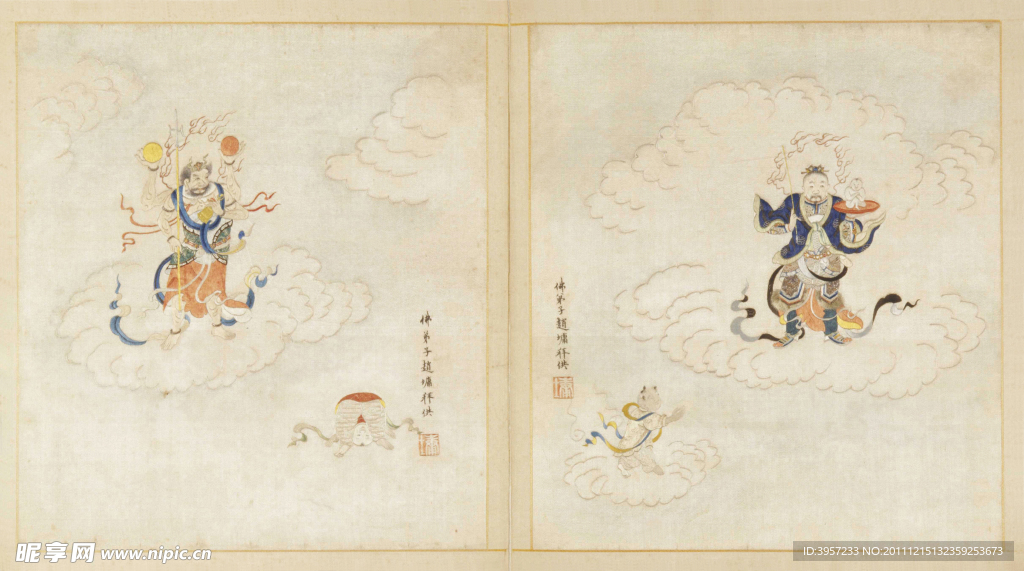 佛弟子趙墉拜供
佛弟子趙墉拜供
昵享网 www.nipic.cn
ID:3957233 NO:20111215132359253673